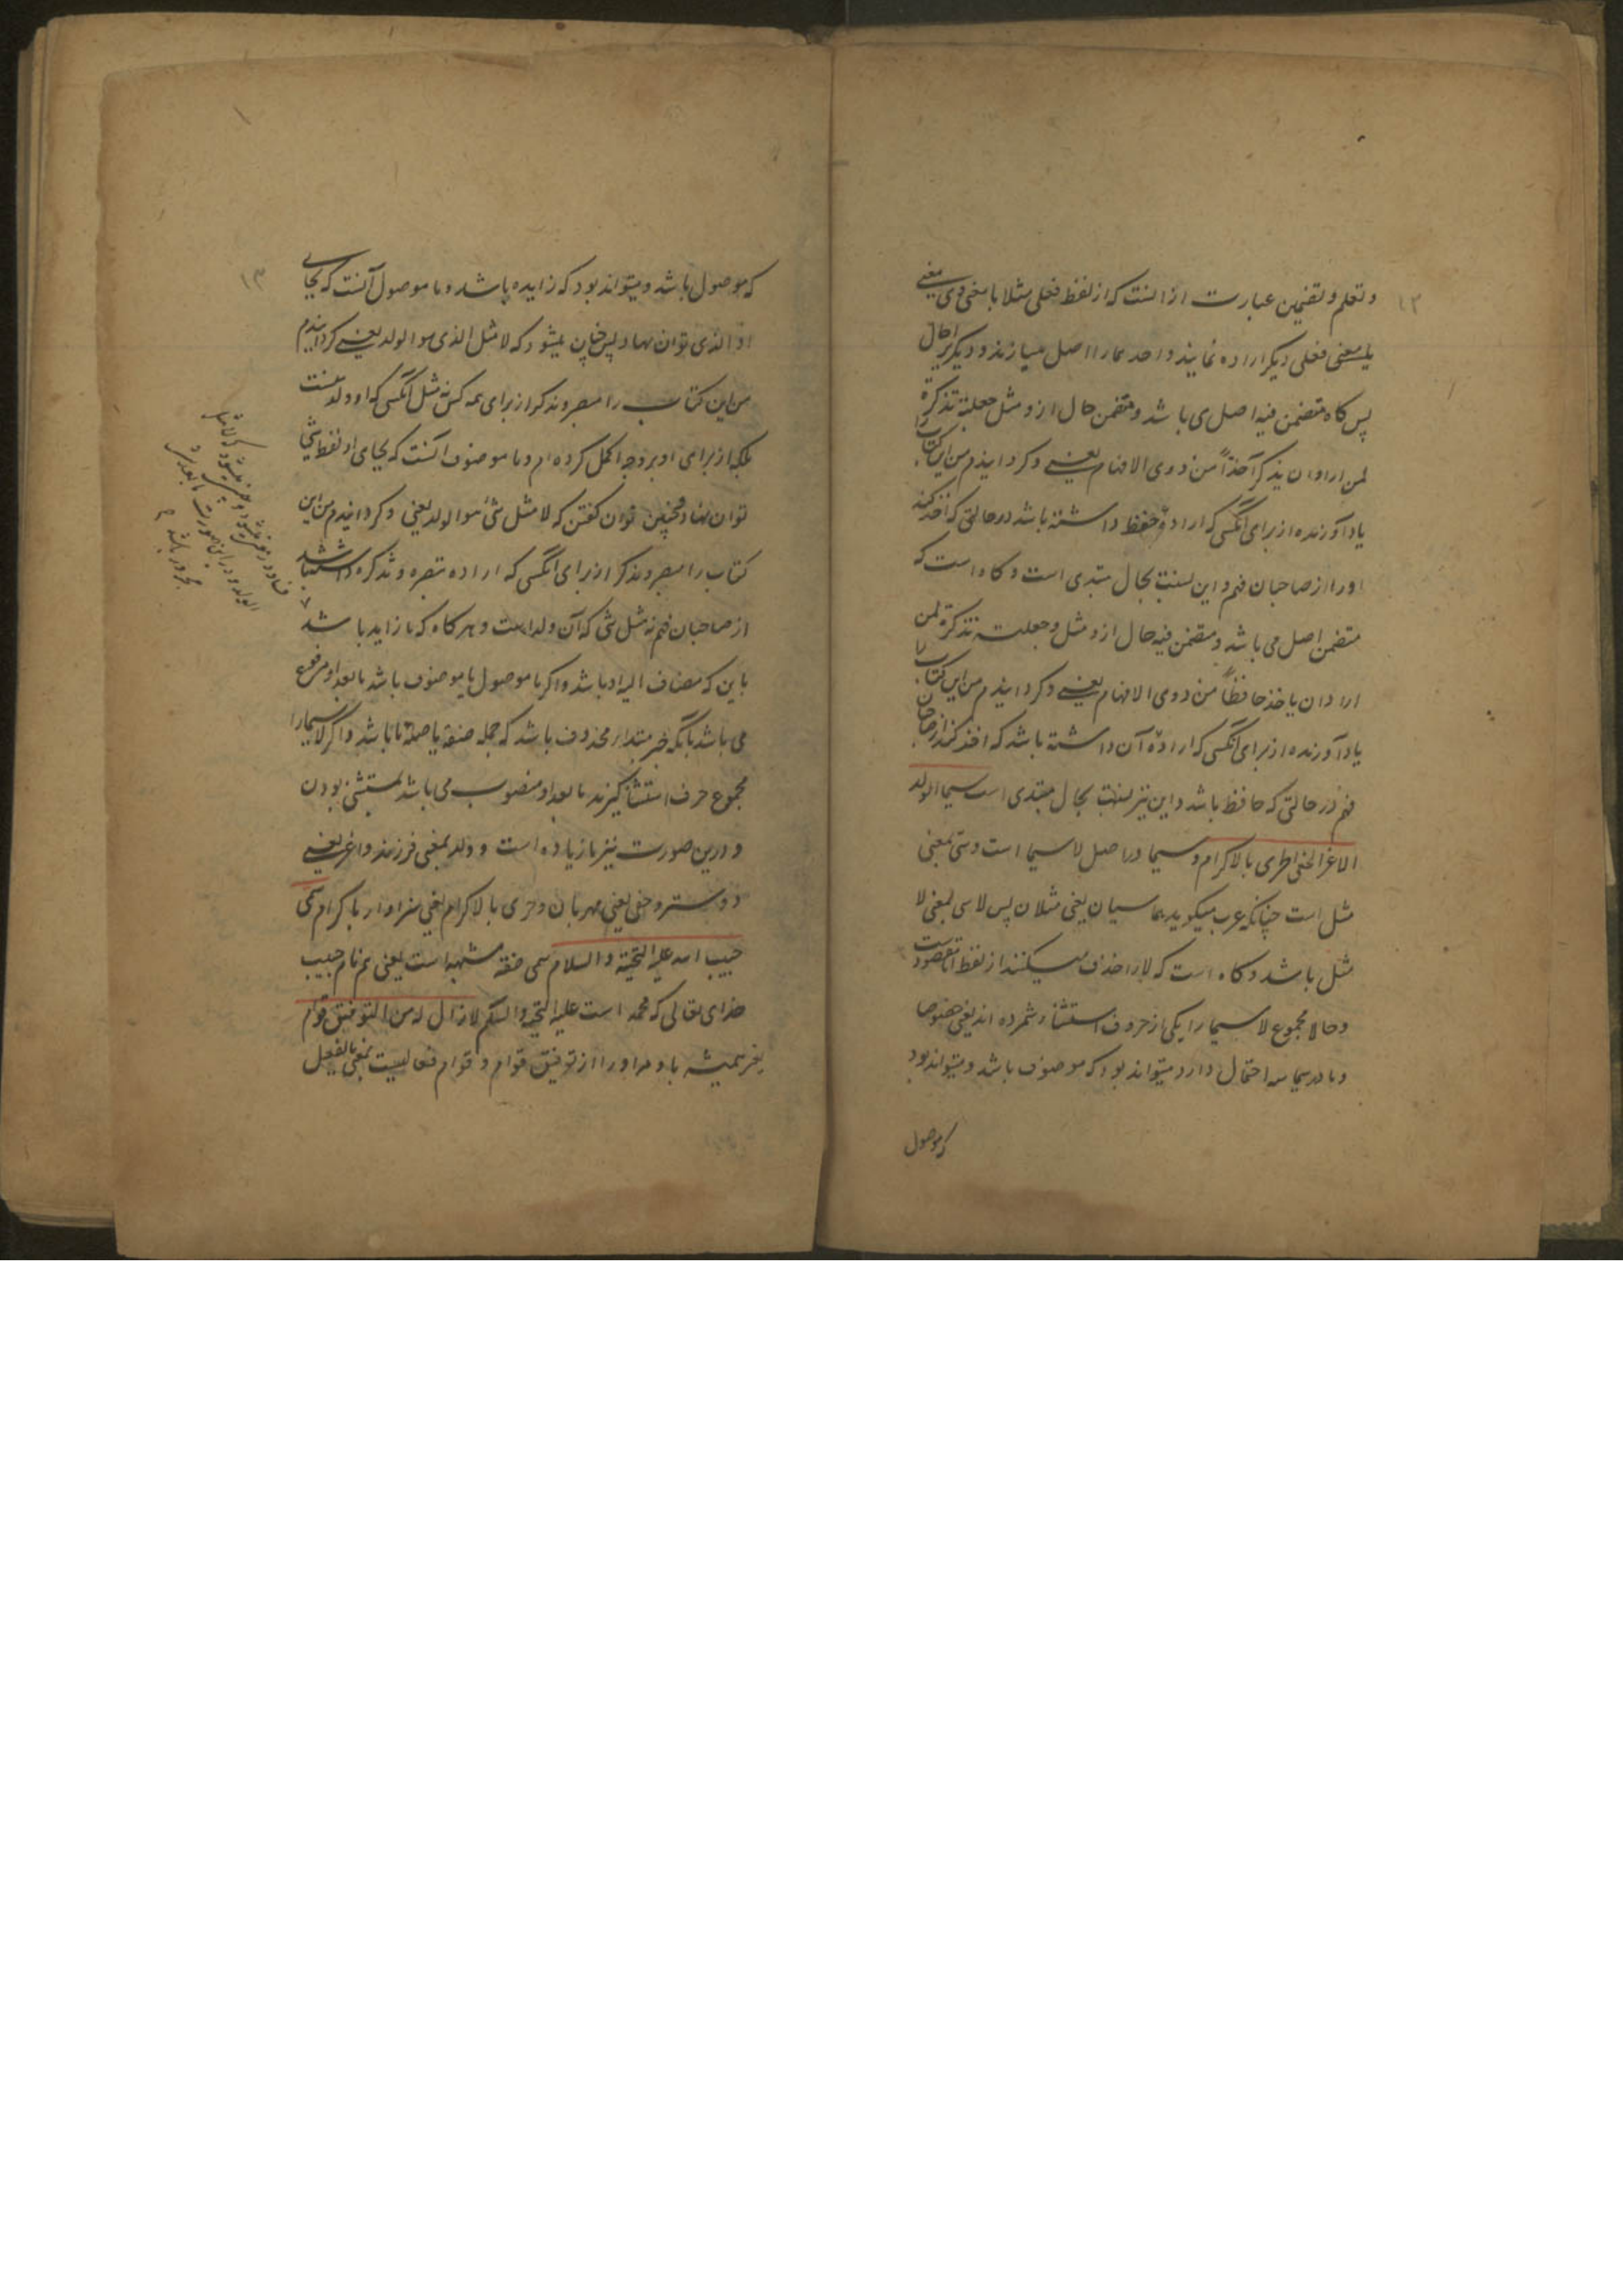 ۱۲
و تعلم و تضمین عبارت از انست که از لفظ فعلی مثلا با معنی وی معنی
یا معنی فعلی دیکر اراده نمایند و احدهما را اصل میسازند و دیکریرا حال
پس کاه متضمن فیه اصل می باشد و متضمن حال ازو مثل جعلته تذکرة
لمن اراد ان یذکر آخذاً من ذوی الافهام یعنی و کردانیدم من این کتاب را
یاد آورنده از برای آنکسی که اراده حفظ داشته باشد در حالتی که اخذ کند
اورا از صاحبان فهم و این نسبت بحال مبتدی است و کاه است که
متضمن اصل می باشد و متضمن فیه حال ازو مثل و جعلته تذکرة لمن
اراد ان یاخذ حافظاً من ذوی الافهام یعنی و کردانیدم من این کتاب را
یاد آورنده از برای آنکسی که اراده آن داشته باشد که اخذ کند از صاحبان
فهم در حالتی که حافظ باشد و این نیز نسبت بحال مبتدی است سیما الولد
الاعز الحفی الحری بالاکرام و سیما در اصل لاسیما است و سی بمعنی
مثل است چنانکه عرب میکوید هما سیان یعنی مثلان پس لاسی بمعنی لا
مثل باشد و کاه است که لا را حذف میکنند از لفظ اما مقصودست
و حالا مجموع لاسیما را یکی از حروف استثنا شمرده اند یعنی خصوصا
و ما در سیما سه احتمال دارد میتواند بود که موصوف باشد و میتواند بود
که موصول
۱۳
که موصول باشد و میتواند بود که زایده باشد و ما موصول آنست که بجای
او الذی توان نهاد پس چنین میشود که لا مثل الذی هو الولد یعنی کردانیدم
من این کتاب را مبصر و مذکر از برای همه کس نه مثل آنکسی که او ولد منست
بلکه از برای او بر وجه اکمل کرده ام و ما موصوف آنست که بجای او لفظ شئ
توان نهاد و همچنین توان کفتن که لا مثل شئ هو الولد یعنی و کردانیدم من این
کتاب را مبصر و مذکر از برای آنکسی که اراده تبصره و تذکره داشته باشد
از صاحبان فهم نه مثل شی که آن ولد است و هر کاه که ما زاید باشد
باین که مضاف الیه او باشد و اکر ما موصول یا موصوف باشد ما بعد او مرفوع
می باشد بآنکه خبر مبتدا محذوف باشد که جمله صفة یا صلة ما باشد و اکر لاسیما را
مجموع حرف استثنا کیرند ما بعد او منصوب می باشد بمستثنی بودن
و درین صورت نیز ما زیاده است و ولد بمعنی فرزند و اعز یعنی
دوستر و حفی یعنی مهربان و حری بالاکرام یعنی سزاوار باکرام سمی
حبیب الله علیه التحیة و السلام سمی صفة مشبهه است یعنی هم نام حبیب
خدای تعالی که محمد است علیه التحیة و السلام لازال له من التوفیق قوام
یعنی همیشه باد مر او را از توفیق قوام و قوام فعالیست بمعنی ما لفعل